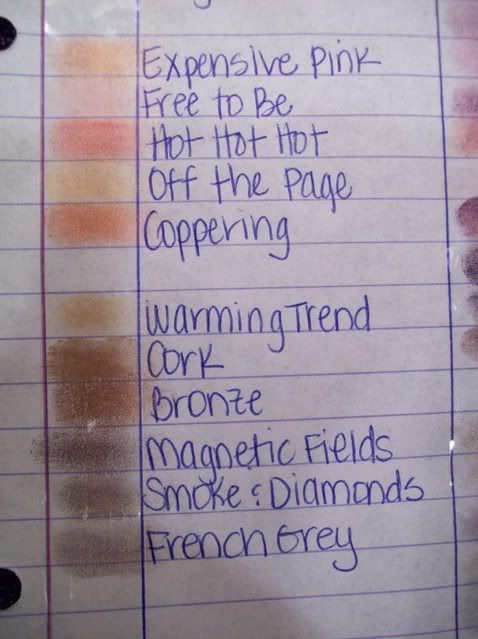 Expensive Pink
Free to Be
Hot Hot Hot
Off the Page
Coppering
Warming Trend
Cork
Bronze
Magnetic Fields
Smoke & Diamonds
French Grey